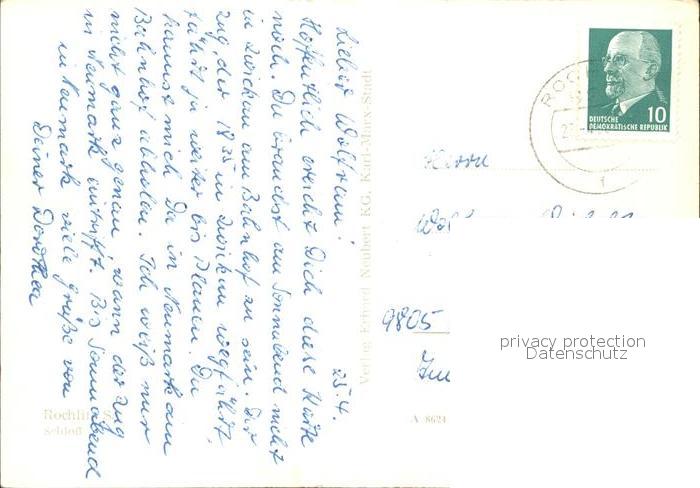 25.4.
Lieber Wolfram!
Hoffentlich erreicht Dich diese Karte
noch. Du brauchst am Sonnabend nicht
in Zwickau am Bahnhof zu sein. Der
Zug, der 18 35 in Zwickau wegfährt,
fährt ja weiter bis Plauen. Du
kannst mich Da in Neumark am
Bahnhof abholen. Ich weiß nur
nicht ganz genau, wann der Zug
in Neumark eintrifft. Bis Sonnabend
in Neumark viele Grüße von
Deiner Dorothea
Rochlitz
Schloß
Verlag Erhard Neubert KG, Karl-Marx-Stadt
A 8624
DEUTSCHE
DEMOKRATISCHE REPUBLIK
10
ROCH
Herrn
9805
privacy protection
Datenschutz